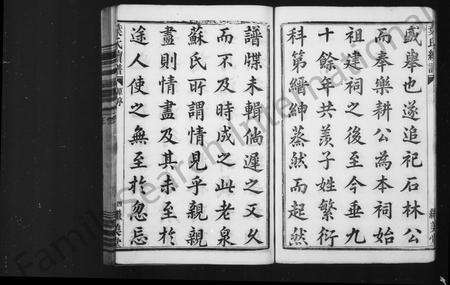 盛舉也遂追祀石林公
而奉樂耕公為本祠始
祖建祠之後至今垂九
十餘年共羨子姓繁衍
科第縉紳蒸然而起然
譜牒未輯倘遲之又久
而不及時成之此老泉
蘇氏所謂情見乎親親
盡則情盡及其未至於
途人使之無至於忽忘
FamilySearch International